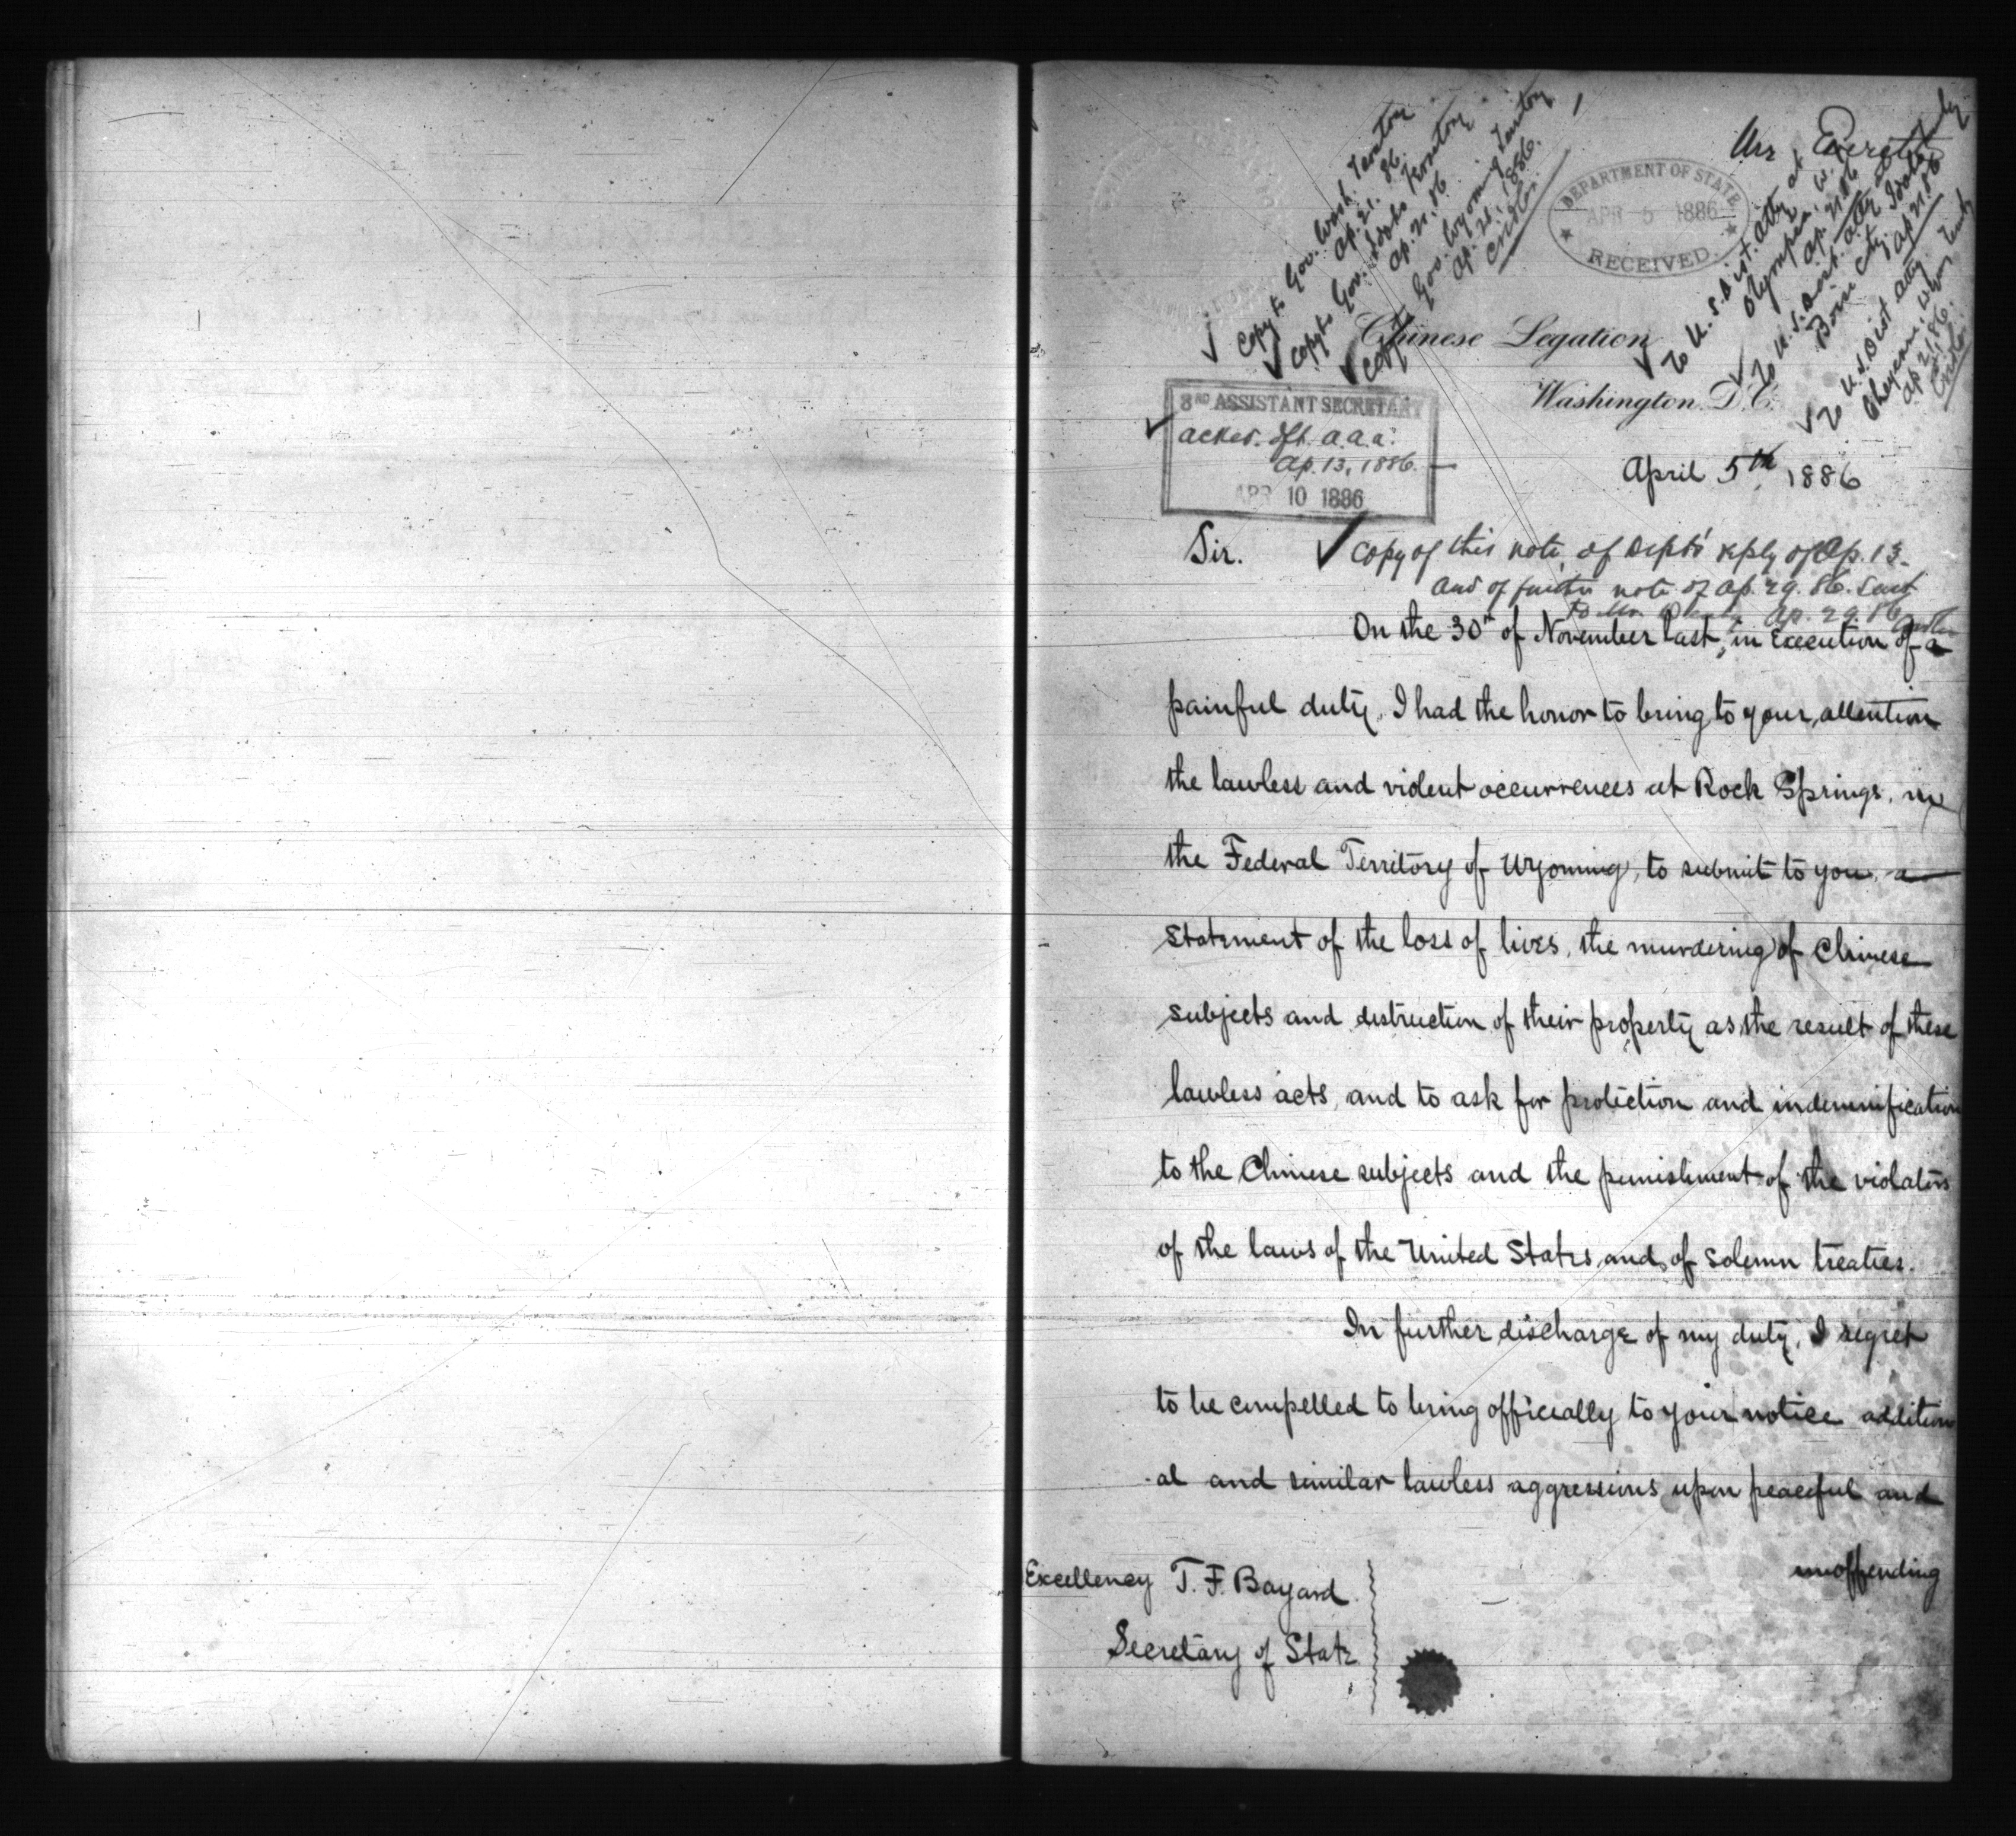 Mr Everett
Copy to Gov. Wash. Territory
Ap. 21. 86.
Copy to Gov. Idaho Territory
Ap. 21. 86.
Copy to Gov. Wyoming Territory
Ap. 21, 1886.
DEPARTMENT OF STATE
APR 5 1886
RECEIVED.
To U.S. Dist. Atty at
Olympia. W.T.
Ap. 21. 86
To U.S. Dist. Atty at
Boise City, Idaho
Ap 21. 86
To U.S. Dist Atty
Cheyenne, Wyom
Ap 21, 86.
Chinese Legation
Washington. D.C.
3RD ASSISTANT SECRETARY
Acked. dft. a.a.a.
Ap. 13, 1886.
APR 10 1886
April 5th, 1886
Sir.
Copy of this note, of Dept's reply of Ap. 13.
and of further note of Ap. 29. 86. sent
to Mr. Ap. 29. 86
On the 30th of November last, in execution of a
painful duty, I had the honor to bring to your attention
the lawless and violent occurrences at Rock Springs, in
the Federal Territory of Wyoming, to submit to you a
statement of the loss of lives, the murdering of Chinese
subjects and destruction of their property as the result of these
lawless acts, and to ask for protection and indemnification
to the Chinese subjects and the punishment of the violators
of the laws of the United States and of solemn treaties.
In further discharge of my duty, I regret
to be compelled to bring officially to your notice addition
-al and similar lawless aggressions upon peaceful and
unoffending
Excellency T. F. Bayard
Secretary of State